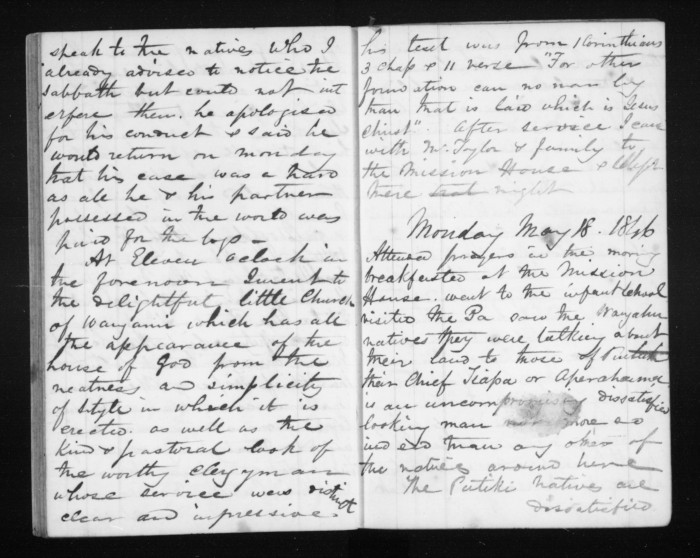 speak to the natives who I
already advised to notice the
Sabbath but could not int
erfere them. he apologised
for his conduct & said he
would return on monday
that his case was a hard
as all he & his partner
possessed in the world was
paid for the logs –
At Eleven oclock in
the forenoon I went to
the delightful little Church
of Wangani which has all
the appearance of the
house of God from the
neatness and simplicity
of style in which it is
erected. as well as the
kind & pastoral look of
the worthy clergyman
whose service was distinct
clear and impressive.
his text was from 1 Corinthians
3 chap & 11 verse "For other
foundation can no man lay
than that is laid which is Jesus
Christ". After service I came
with Mr Taylor & family to
the Mission House & slept
there that night
Monday May 18. 1846
Attened prayers in the morning
breakfasted at the Mission
House. went to the infant School
visited the Pa saw the
natives they were talking about
their land to those of
their Chief
is an uncompromising dissatisfied
looking man more so
and so than any other of
the natives around here
The Putiki natives are
dissatisfied